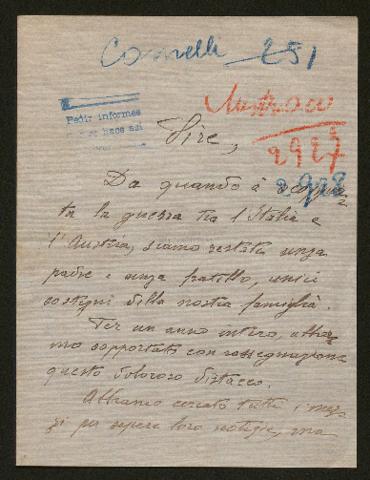 Comelli 251
Pedir informes
hace
Sire,
Austriaco
2927
2928
Da quando è scoppia-
ta la guerra tra l'Italia e
l'Austria, siamo restati senza
padre e senza fratello, unici
sostegni della nostra famiglia.
Per un anno intero, abbia-
mo sopportato con rassegnazione
questo doloroso distacco.
Abbiamo cercato tutti i mez-
zi per sapere loro notizie, ma